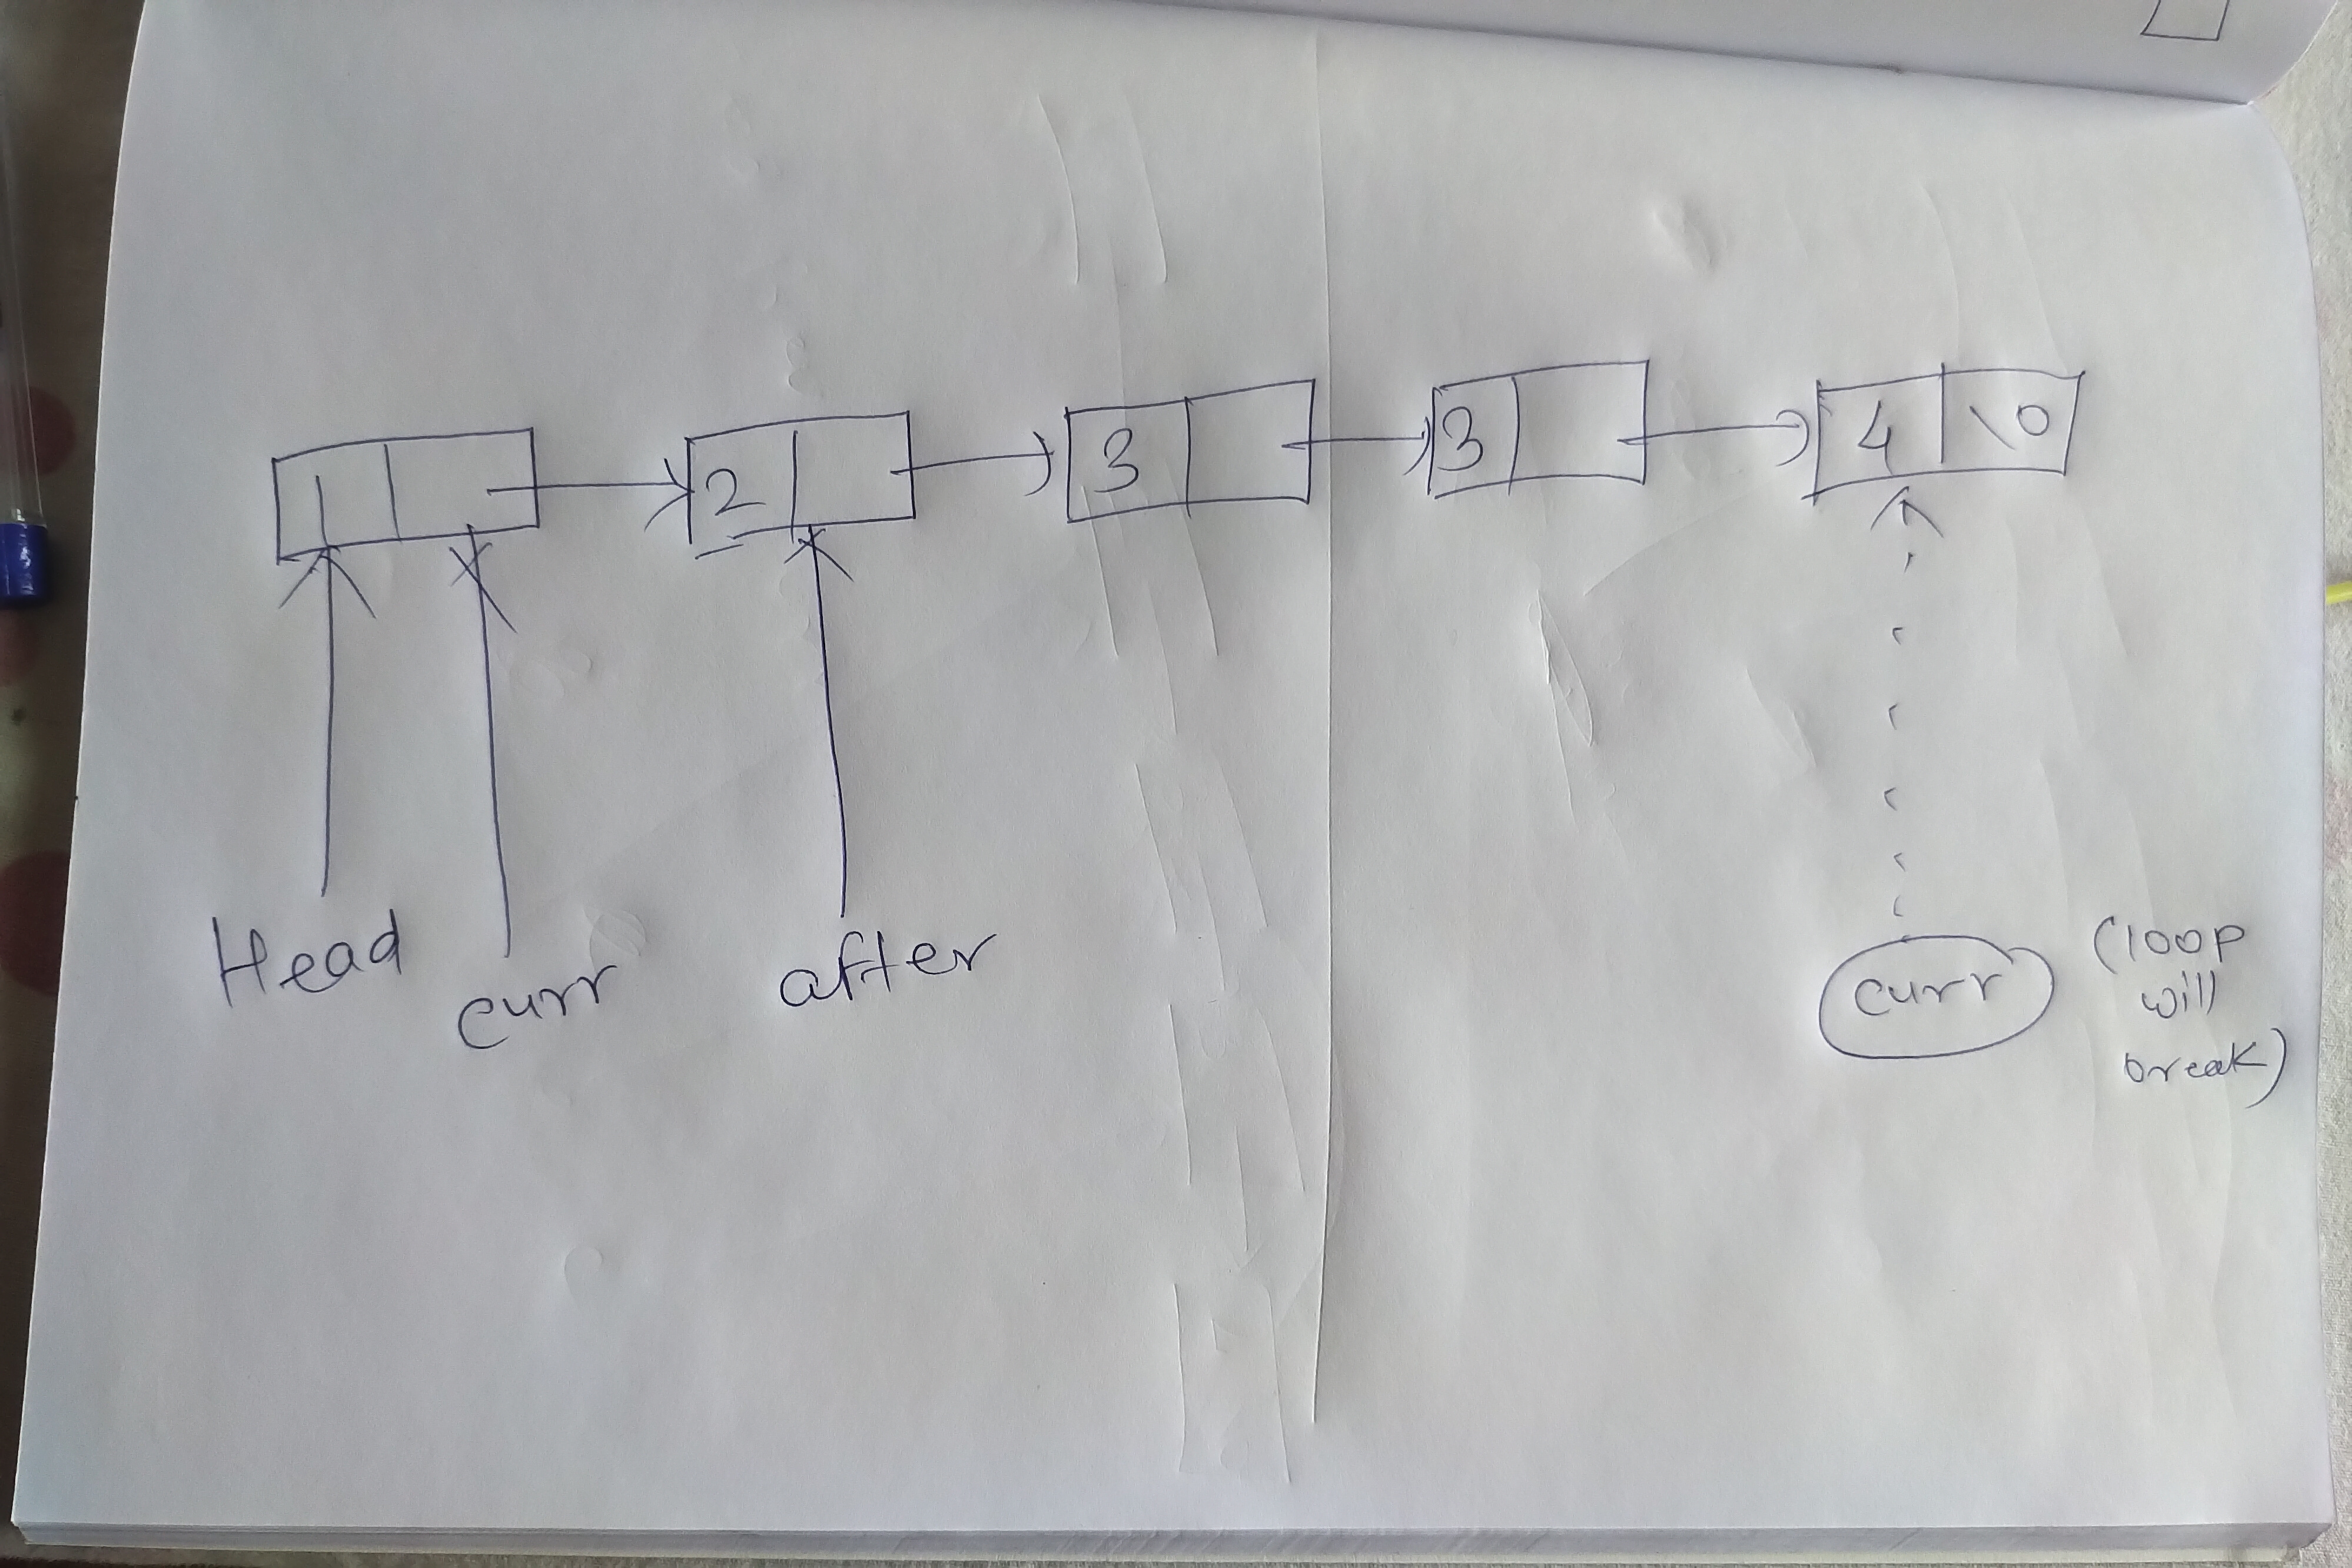 1 2 3 3 4 \0
Head curr after curr (loop
will
break)